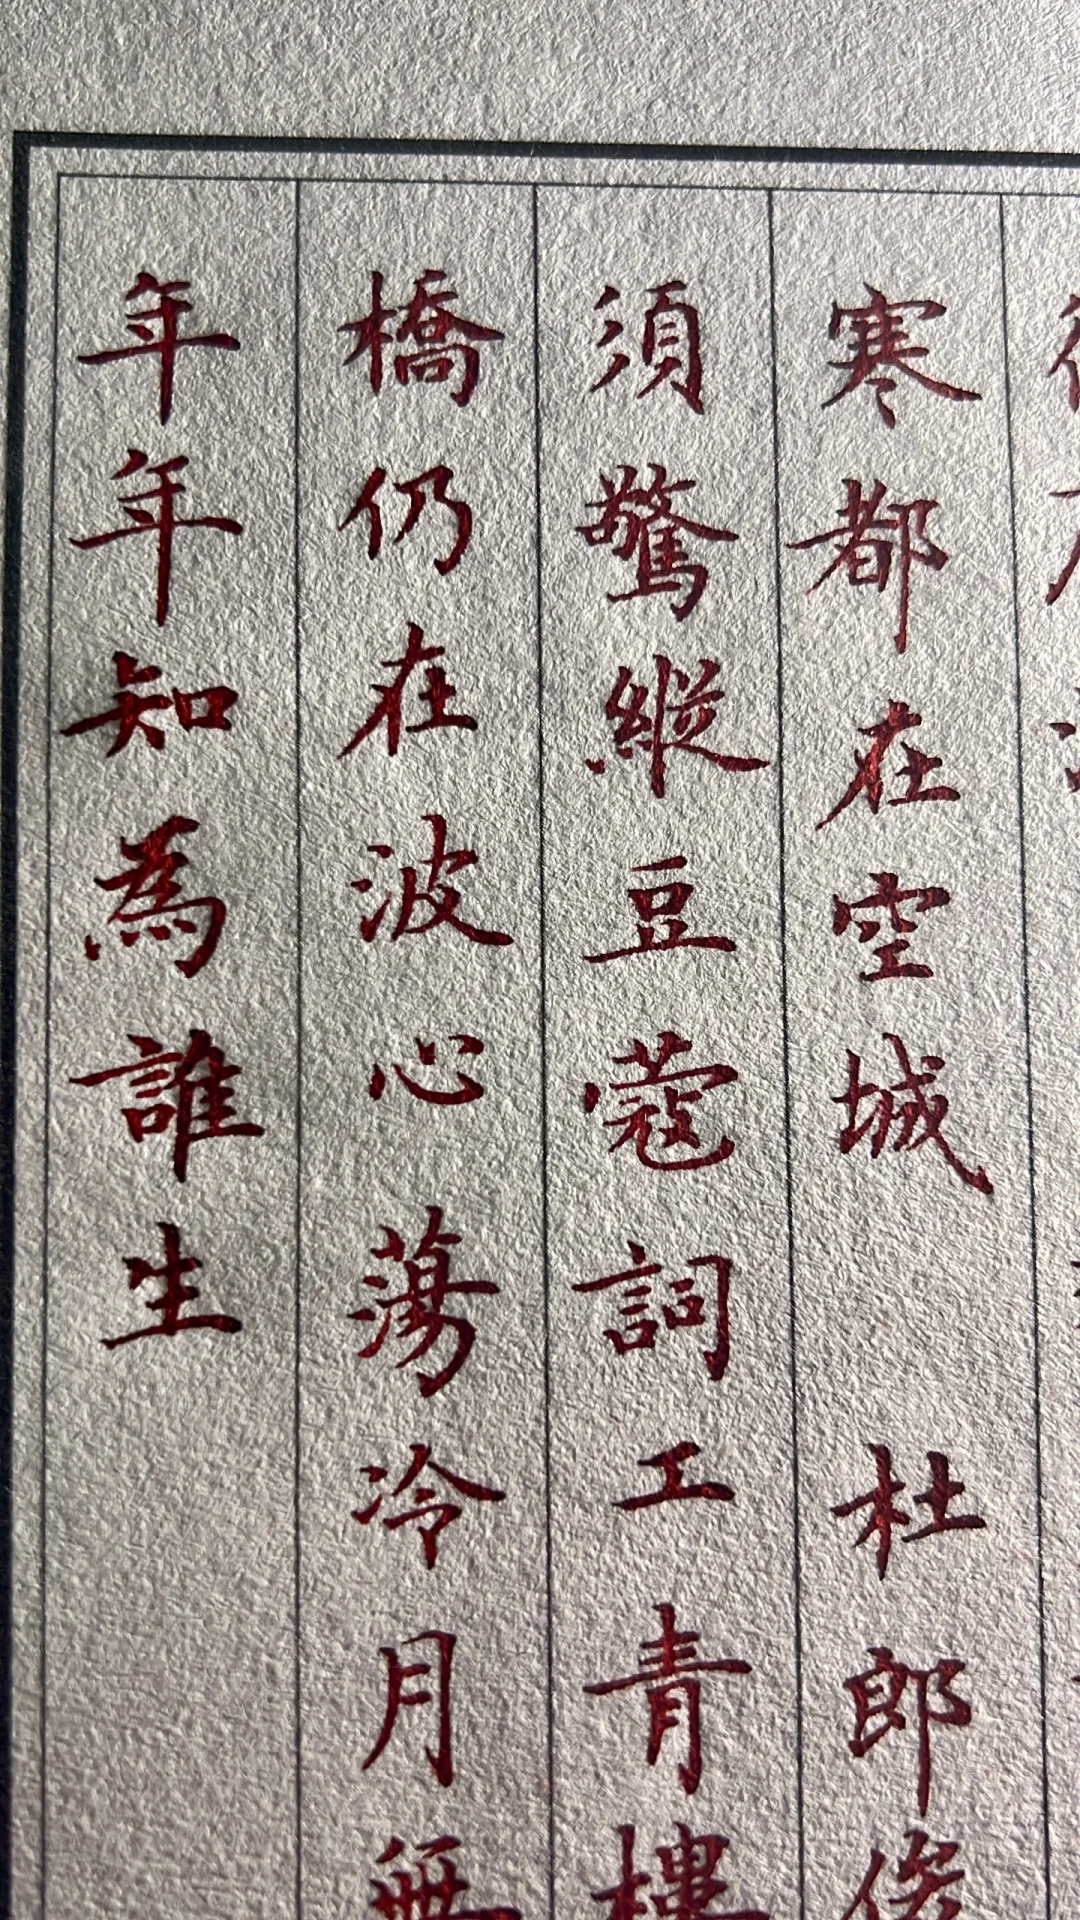 寒都在空城 杜郎俊
須驚縱豆蔻詞工青樓
橋仍在波心蕩冷月無
年年知為誰生